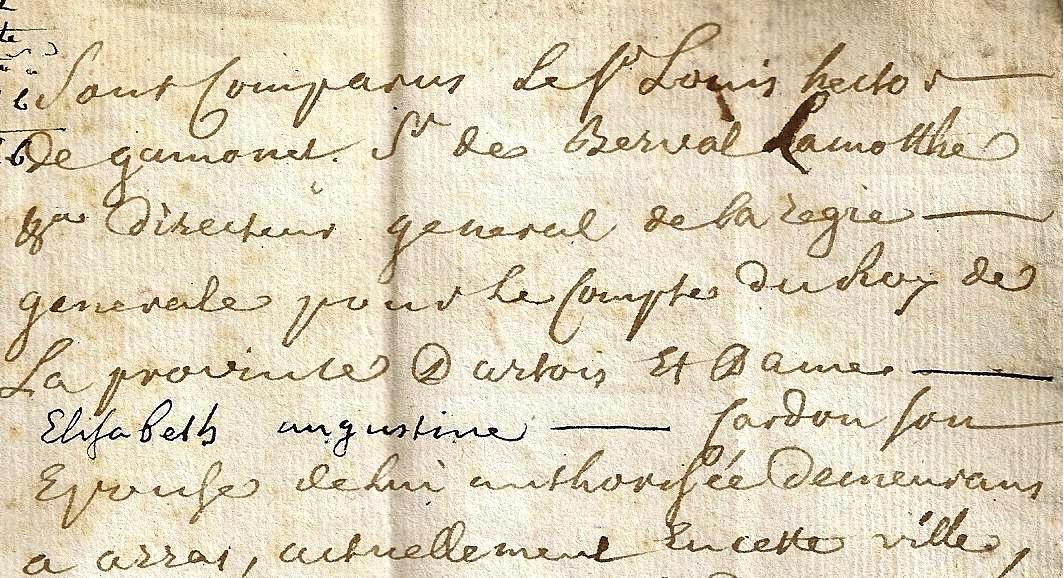 Sont Comparus Le Sr Louis hector
De gamonet Sr de Berval Lamotthe
directeur general de la regie
generale pour le Compte du Roy de
La province D'artois Et Dame
Elisabeth augustine Cardon son
Epouse de lui authorisée Demeurans
a arras, actuellement En cette ville,